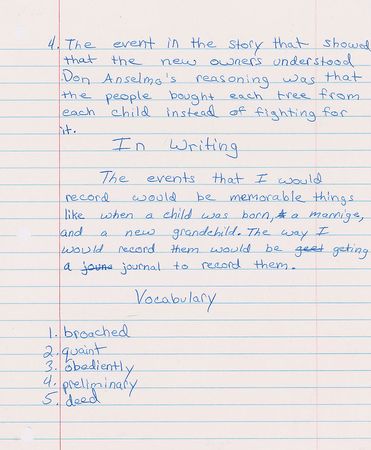 4. The event in the story that showed
that the new owners understood
Don Anselmo's reasoning was that
the people bought each tree from
each child instead of fighting for
it.
In Writing
The events that I would
record would be memorable things
like when a child was born, a marrige,
and a new grandchild. The way I
would record them would be geting
a journal to record them.
Vocabulary
1. broached
2. quaint
3. obediently
4. preliminary
5. deed